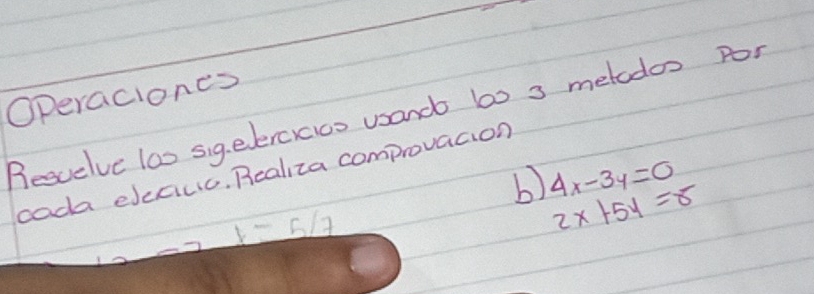 Operaciones
Resuelve los sig. ejercicios usando los 3 metodos por
cada ejercicio. Realiza comprovación
b) 4x-3y=0
2x+5y=8
= 5/7